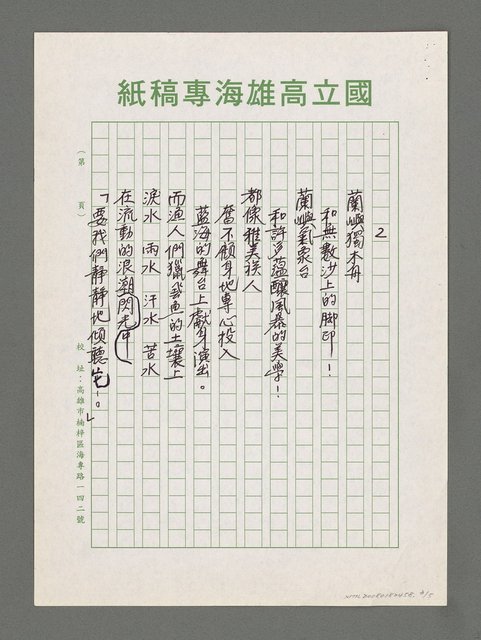 國立高雄海專稿紙
（第　頁）
2
蘭嶼獨木舟
和無數沙上的腳印！
蘭嶼氣象台
和許多蘊釀風暴的美學！
都像雅美族人
奮不顧身地專心投入
藍海的舞台上獻身演出。
而漁人們獵飛魚的土壤上
淚水 雨水 汗水 苦水
在流動的浪潮閃光中
「要我們靜靜地傾聽它…。」
校址：高雄市楠梓區海專路一四二號